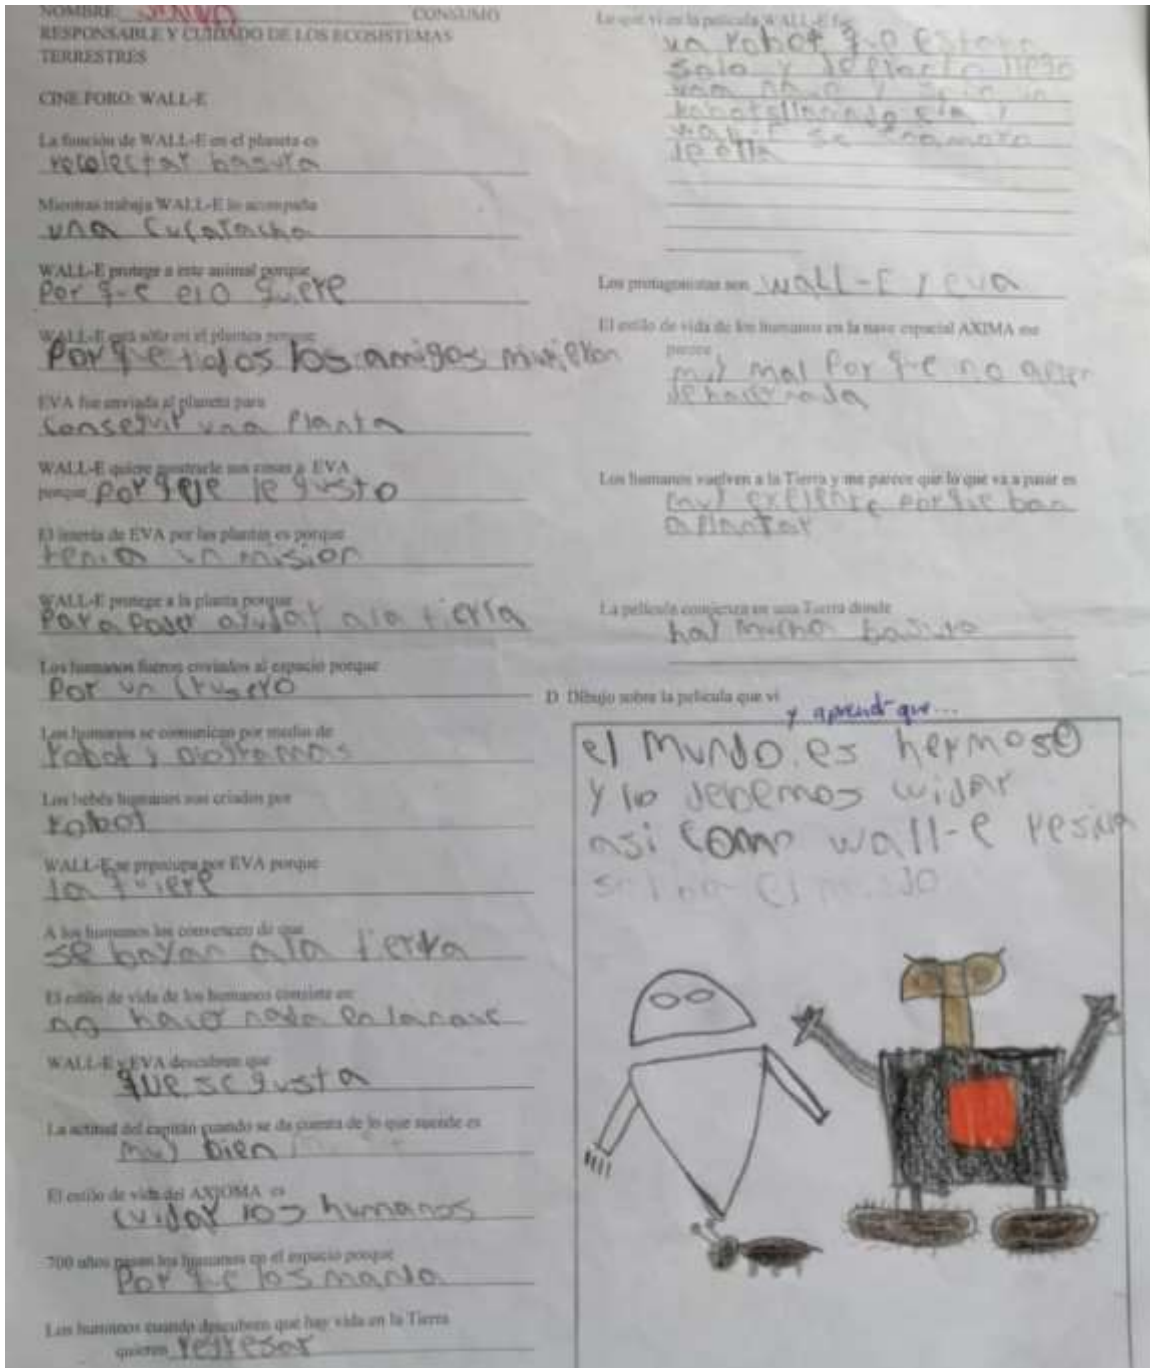 NOMBRE: CONSUMO
RESPONSABLE Y CUIDADO DE LOS ECOSISTEMAS
TERRESTRES
CINE FORO: WALL-E
La función de WALL-E en el planeta es
recolectar basura
Mientras trabaja WALL-E lo acompaña
una cucaracha
WALL-E protege a este animal porque
Por que elo quiere
WALL-E está sólo en el planeta porque
Por que todos los amigos murieron
EVA fue enviada al planeta para
conseguir una Planta
WALL-E quiere mostrarle sus cosas a EVA
porque Por que le gusto
El interés de EVA por las plantas es porque
tenia un mision
WALL-E protege a la planta porque
Para poder ayudar ala tierra
Los humanos fueron enviados al espacio porque
Por un
Los humanos se comunican por medio de
robot y
Los bebés humanos son criados por
robot
WALL-E se preocupa por EVA porque
la quiere
A los humanos los convencen de que
se bayan ala tierra
El estilo de vida de los humanos consiste en:
no hacer nada en la nave
WALL-E y EVA descubren que
que se gusta
La actitud del capitán cuando se da cuenta de lo que sucede es
muy bien
El estilo de vida del AXIOMA es
cuidar los humanos
700 años pasan los humanos en el espacio porque
Por que los manda
Los humanos cuando descubren que hay vida en la Tierra
quieren regresar
Lo que vi en la película WALL-E fue
un robot que estaba
solo y llego
una nave y
robot llamado eva y
wall-e se enamoro
de ella
Los protagonistas son wall-E y eva
El estilo de vida de los humanos en la nave espacial AXIMA me
parece
muy mal Por que no
de hacer nada
Los humanos vuelven a la Tierra y me parece que lo que va a pasar es
muy exelente porque ban
a plantar
La película comienza en una Tierra donde
hay mucha basura
D Dibujo sobre la película que vi
y aprendí que...
el mundo es hermoso
y lo debemos cuidar
asi como wall-e